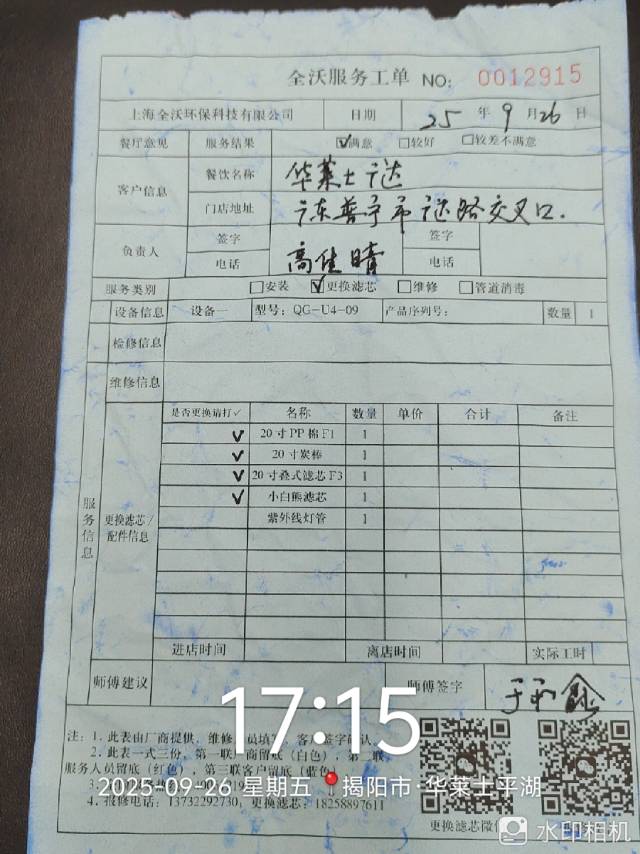 全沃服务工单 NO: 0012915
上海全沃环保科技有限公司 日期 25 年 9 月 26 日
餐厅意见 服务结果 ☑满意 □较好 □较差不满意
客户信息 餐饮名称 华莱士 达
门店地址 广东普宁市 路交叉口.
负责人 签字 高佳晴 签字
电话 电话
服务类别 □安装 ☑更换滤芯 □维修 □管道消毒
设备信息 设备一 型号: QG-U4-09 产品序列号: 数量 1
检修信息
维修信息
服务信息 更换滤芯/配件信息
是否更换请打✓ 名称 数量 单价 合计 备注
✓ 20寸PP棉F1 1
✓ 20寸炭棒 1
✓ 20寸叠式滤芯F3 1
✓ 小白熊滤芯 1
紫外线灯管 1
进店时间 离店时间 实际工时
师傅建议 师傅签字
17:15
注: 1. 此表由厂商提供, 维修 员填写, 客户签字确认。
2. 此表一式三份, 第一联厂商留底(白色), 第二联
服务人员留底(红色), 第三联客户留底(蓝色)
2025-09-26 星期五 揭阳市·华莱士平湖
4. 报修电话: 13732292730, 更换滤芯: 18258897611
更换滤芯微信
水印相机